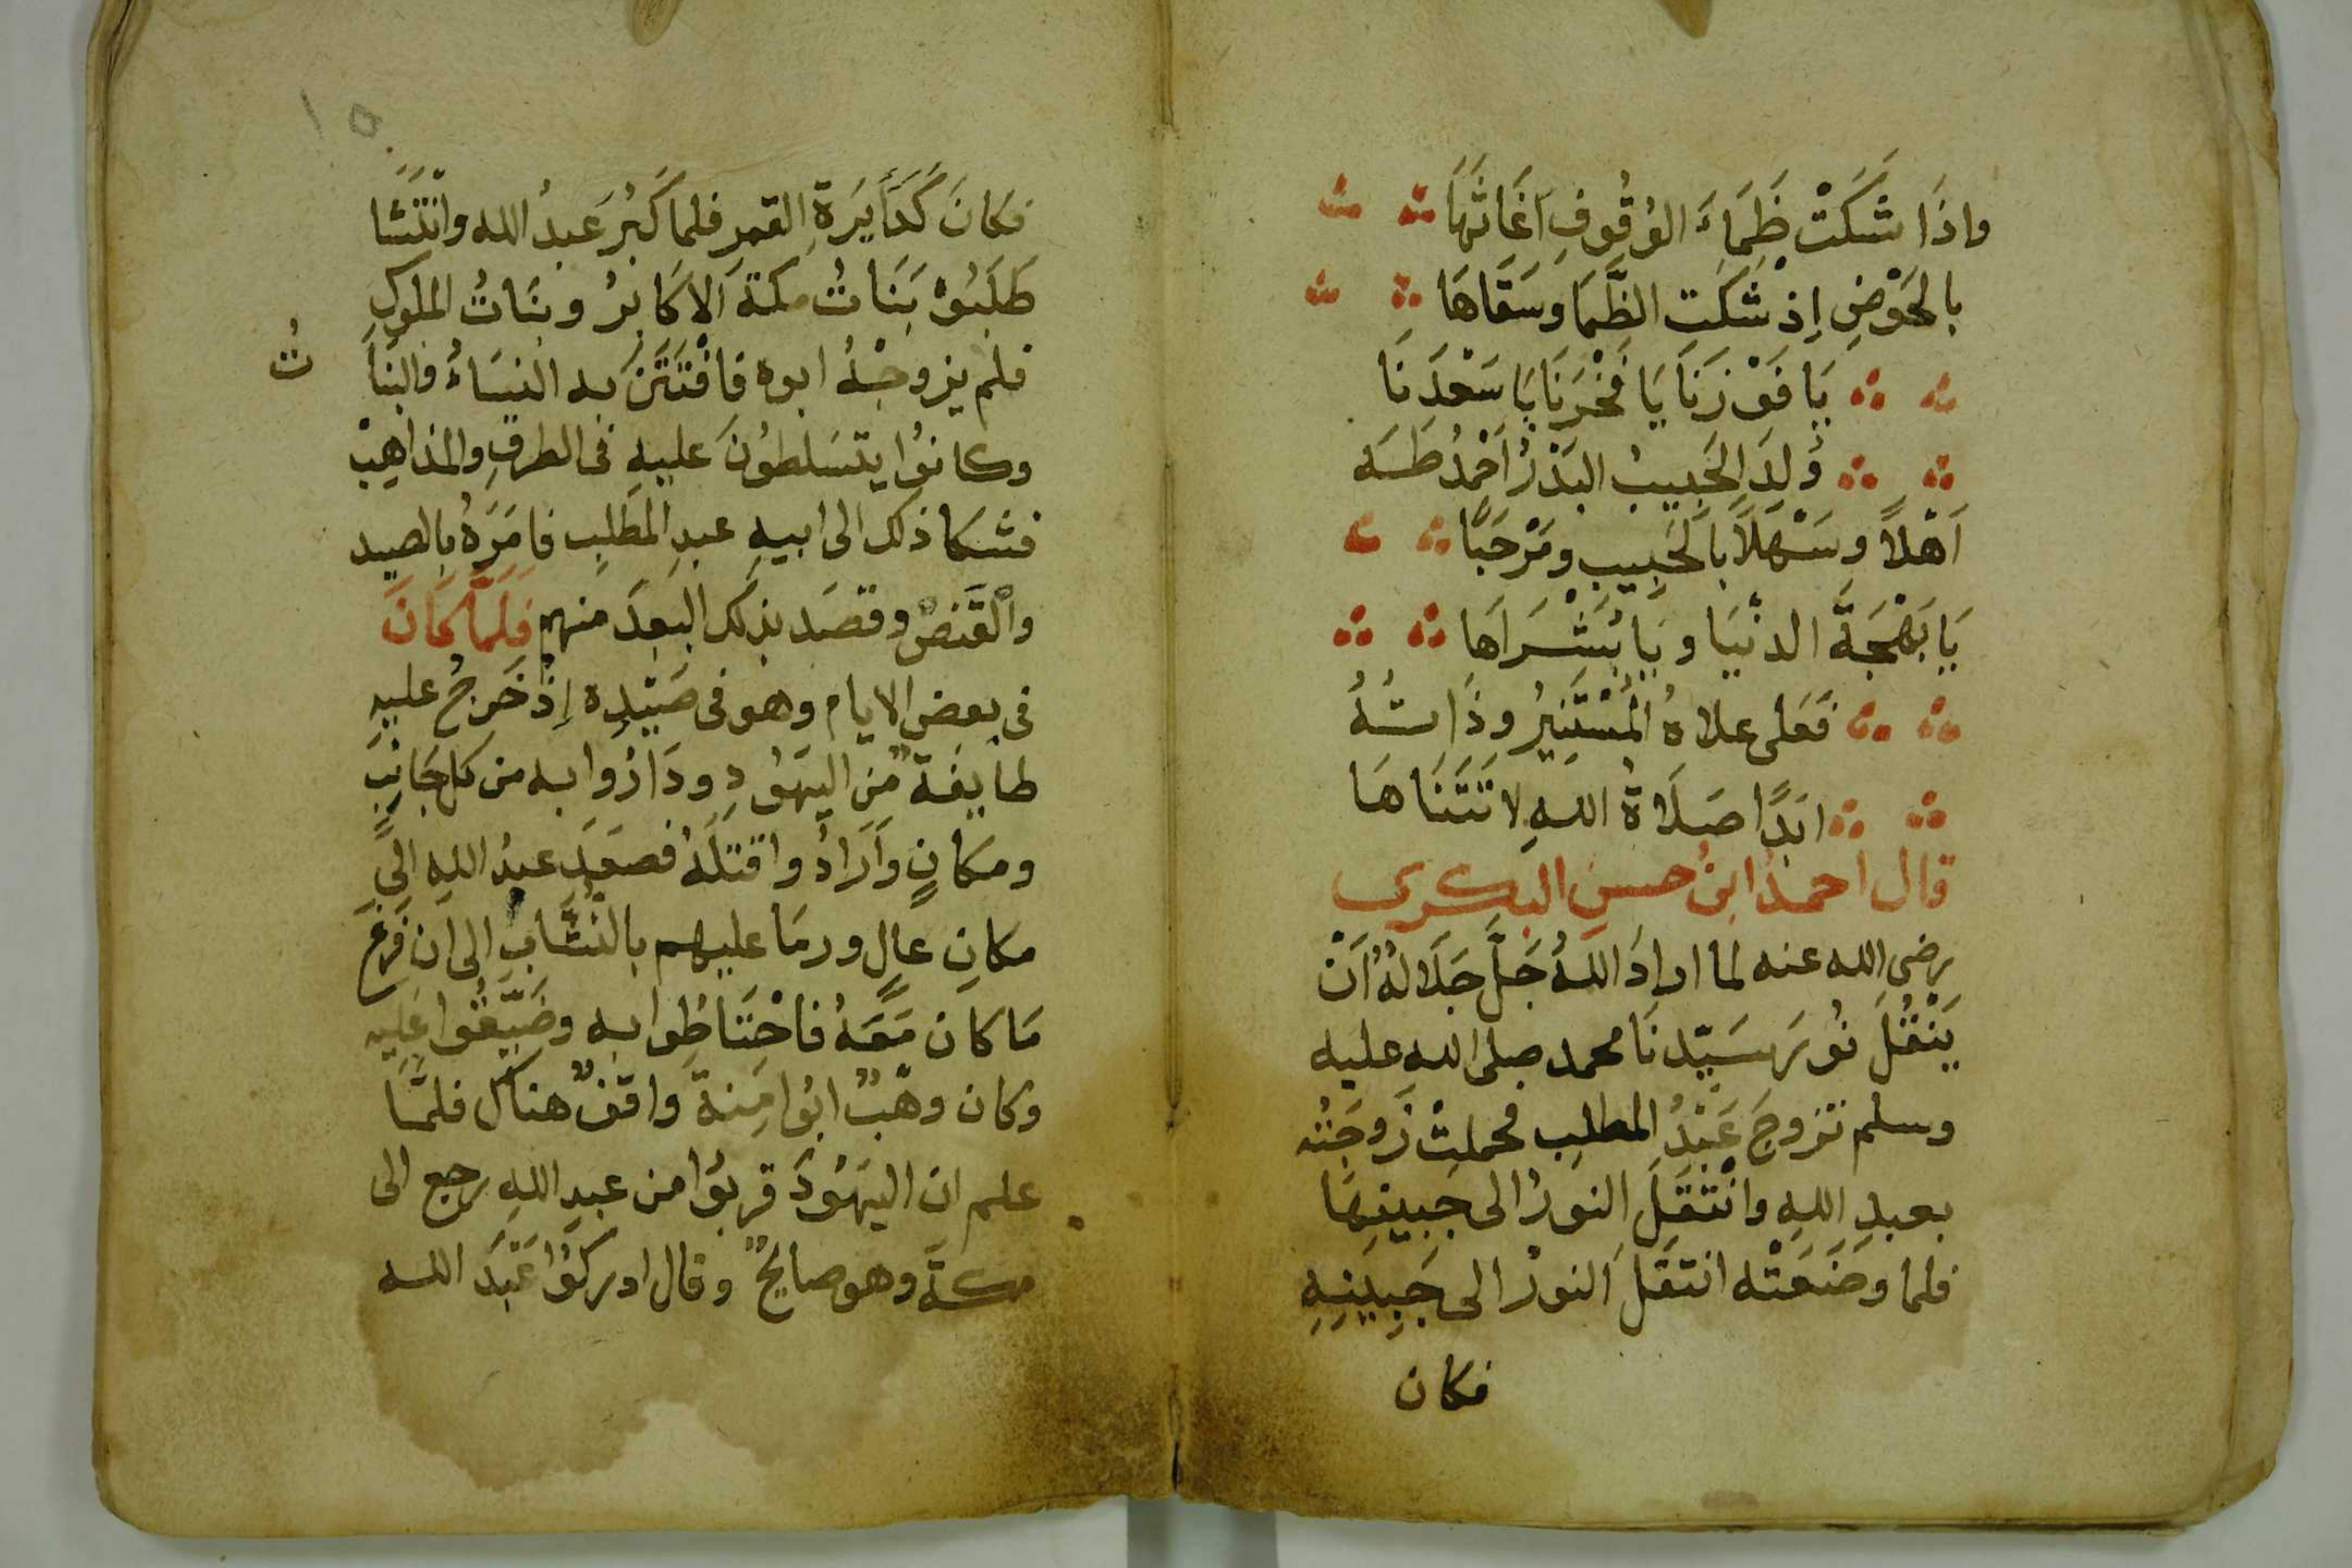 واذَا شَكَتْ ظَمَاءَ الوُقُوفِ اَغَاثَهَا
بالحَوْضِ إِذْ شَكَتِ الظَّمَا وسَقَاهَا
يَا فَوْزَنَا يَا فَخْرَنَا يَا سَعْدَنَا
وُلِدَ الحَبِيبُ البَدْرُ اَحْمَدُ طَـه
اَهْلاً وسَهْلاً بالحَبِيبِ ومَرْحَبًا
يَا بَهْجَةَ الدنْيَا ويَا بُشْرَاهَا
فَعَلى علاهُ المُسْتَنِيرُ وذَاتُهُ
ابَدًا صَلَاةُ اللهِ لا تَتَنَاهَا
قال احمدُ ابنُ حسنِ البكرى
رضى الله عنه لما اراد اللهُ جَلَّ جَلَالهُ اَنْ
يَنْقُلَ نُورَ سَيِّدنَا محمد صلى الله عليه
وسلم تزوجَ عَبْدُ المطلِب فحملتْ زَوجَتُه
بعبدِ اللهِ وانْتَقَلَ النورُ الى جَبينِهَا
فلما وضَعَتْه انتقَلَ النورُ الى جَبِينِهِ
فكان
١٥
فكانَ كَدَأيَرَةِ القمرِ فلما كَبُرَ عَبدُ الله وانْتَشَا
طَلَبُوْهُ بَنَاتُ مكةَ الاكَابرُ وبنَاتُ الملوكِ
فلم يزوجْهُ ابوه فافْتَتَنَ به النِسَاءُ والبنَا
تُ
وكانوُا يتسَلطوُنَ عليهِ فى الطرقِ والمذاهِبْ
فشكا ذلك الى ابيهِ عبدِ المطَلِبِ فامَرَهُ بالصيد
والْقَنصْ وقصَد بذلك البعدَ منهم فَلَمَّا كَانَ
فى بعضِ الايام وهو فى صَيْدِه إِذْ خَرجُ عليهِ
طايفةٌ مِن اليَهوُدِ ودَارُوا به من كل جَانِبَ
ومكانٍ واَرَادُوا قتلَهُ فصعَدِ عبدُ اللهِ الى
مكانِ عالٍ ورمَا عليهم بالنُشَّابِ الى ان فَرغَ
مَا كان مَعَهُ فاحْتَاطُوا به وضَيَّقُوا عَلِيه
وكان وهَبٌ ابُوا مِنةَ واقفٌ هناك فلمَّا
علم ان اليَهُودَ قربوُا من عبدِ اللهِ رجع الى
مكـةَ وهو صايحٌ وقال ادركُوُا عَبْدَ الله